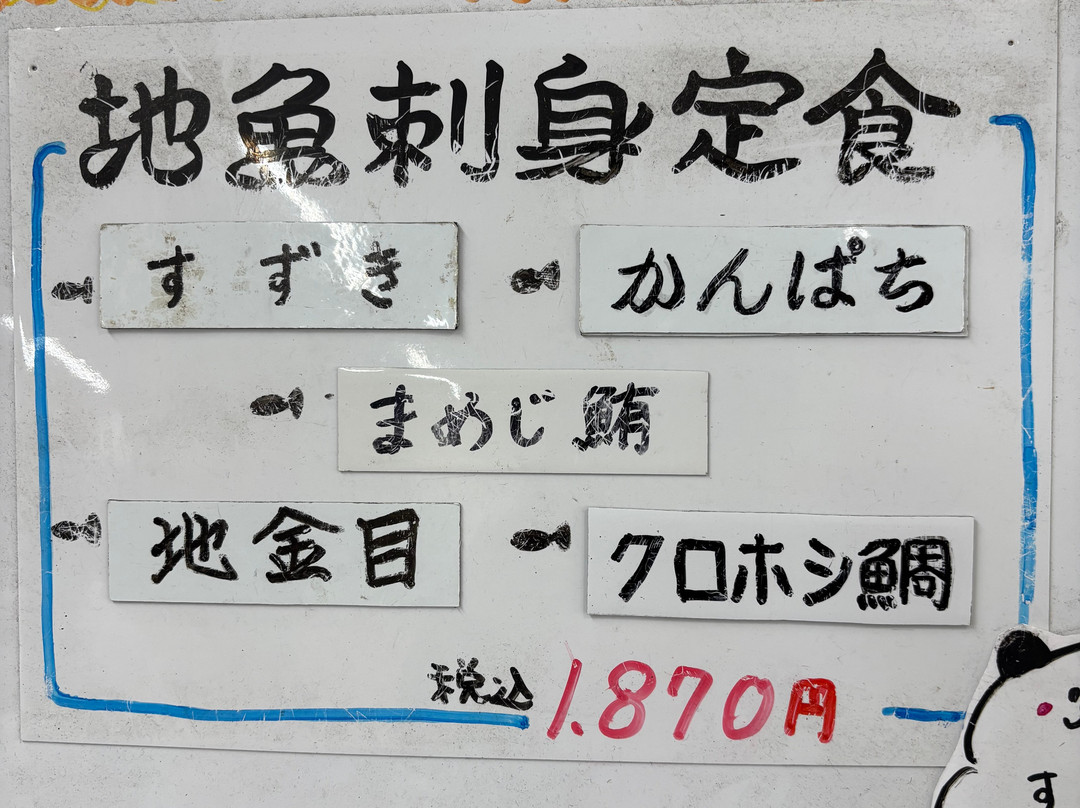 地魚刺身定食
すずき
かんぱち
まめじ鮪
地金目
クロホシ鯛
税込 1.870円
す